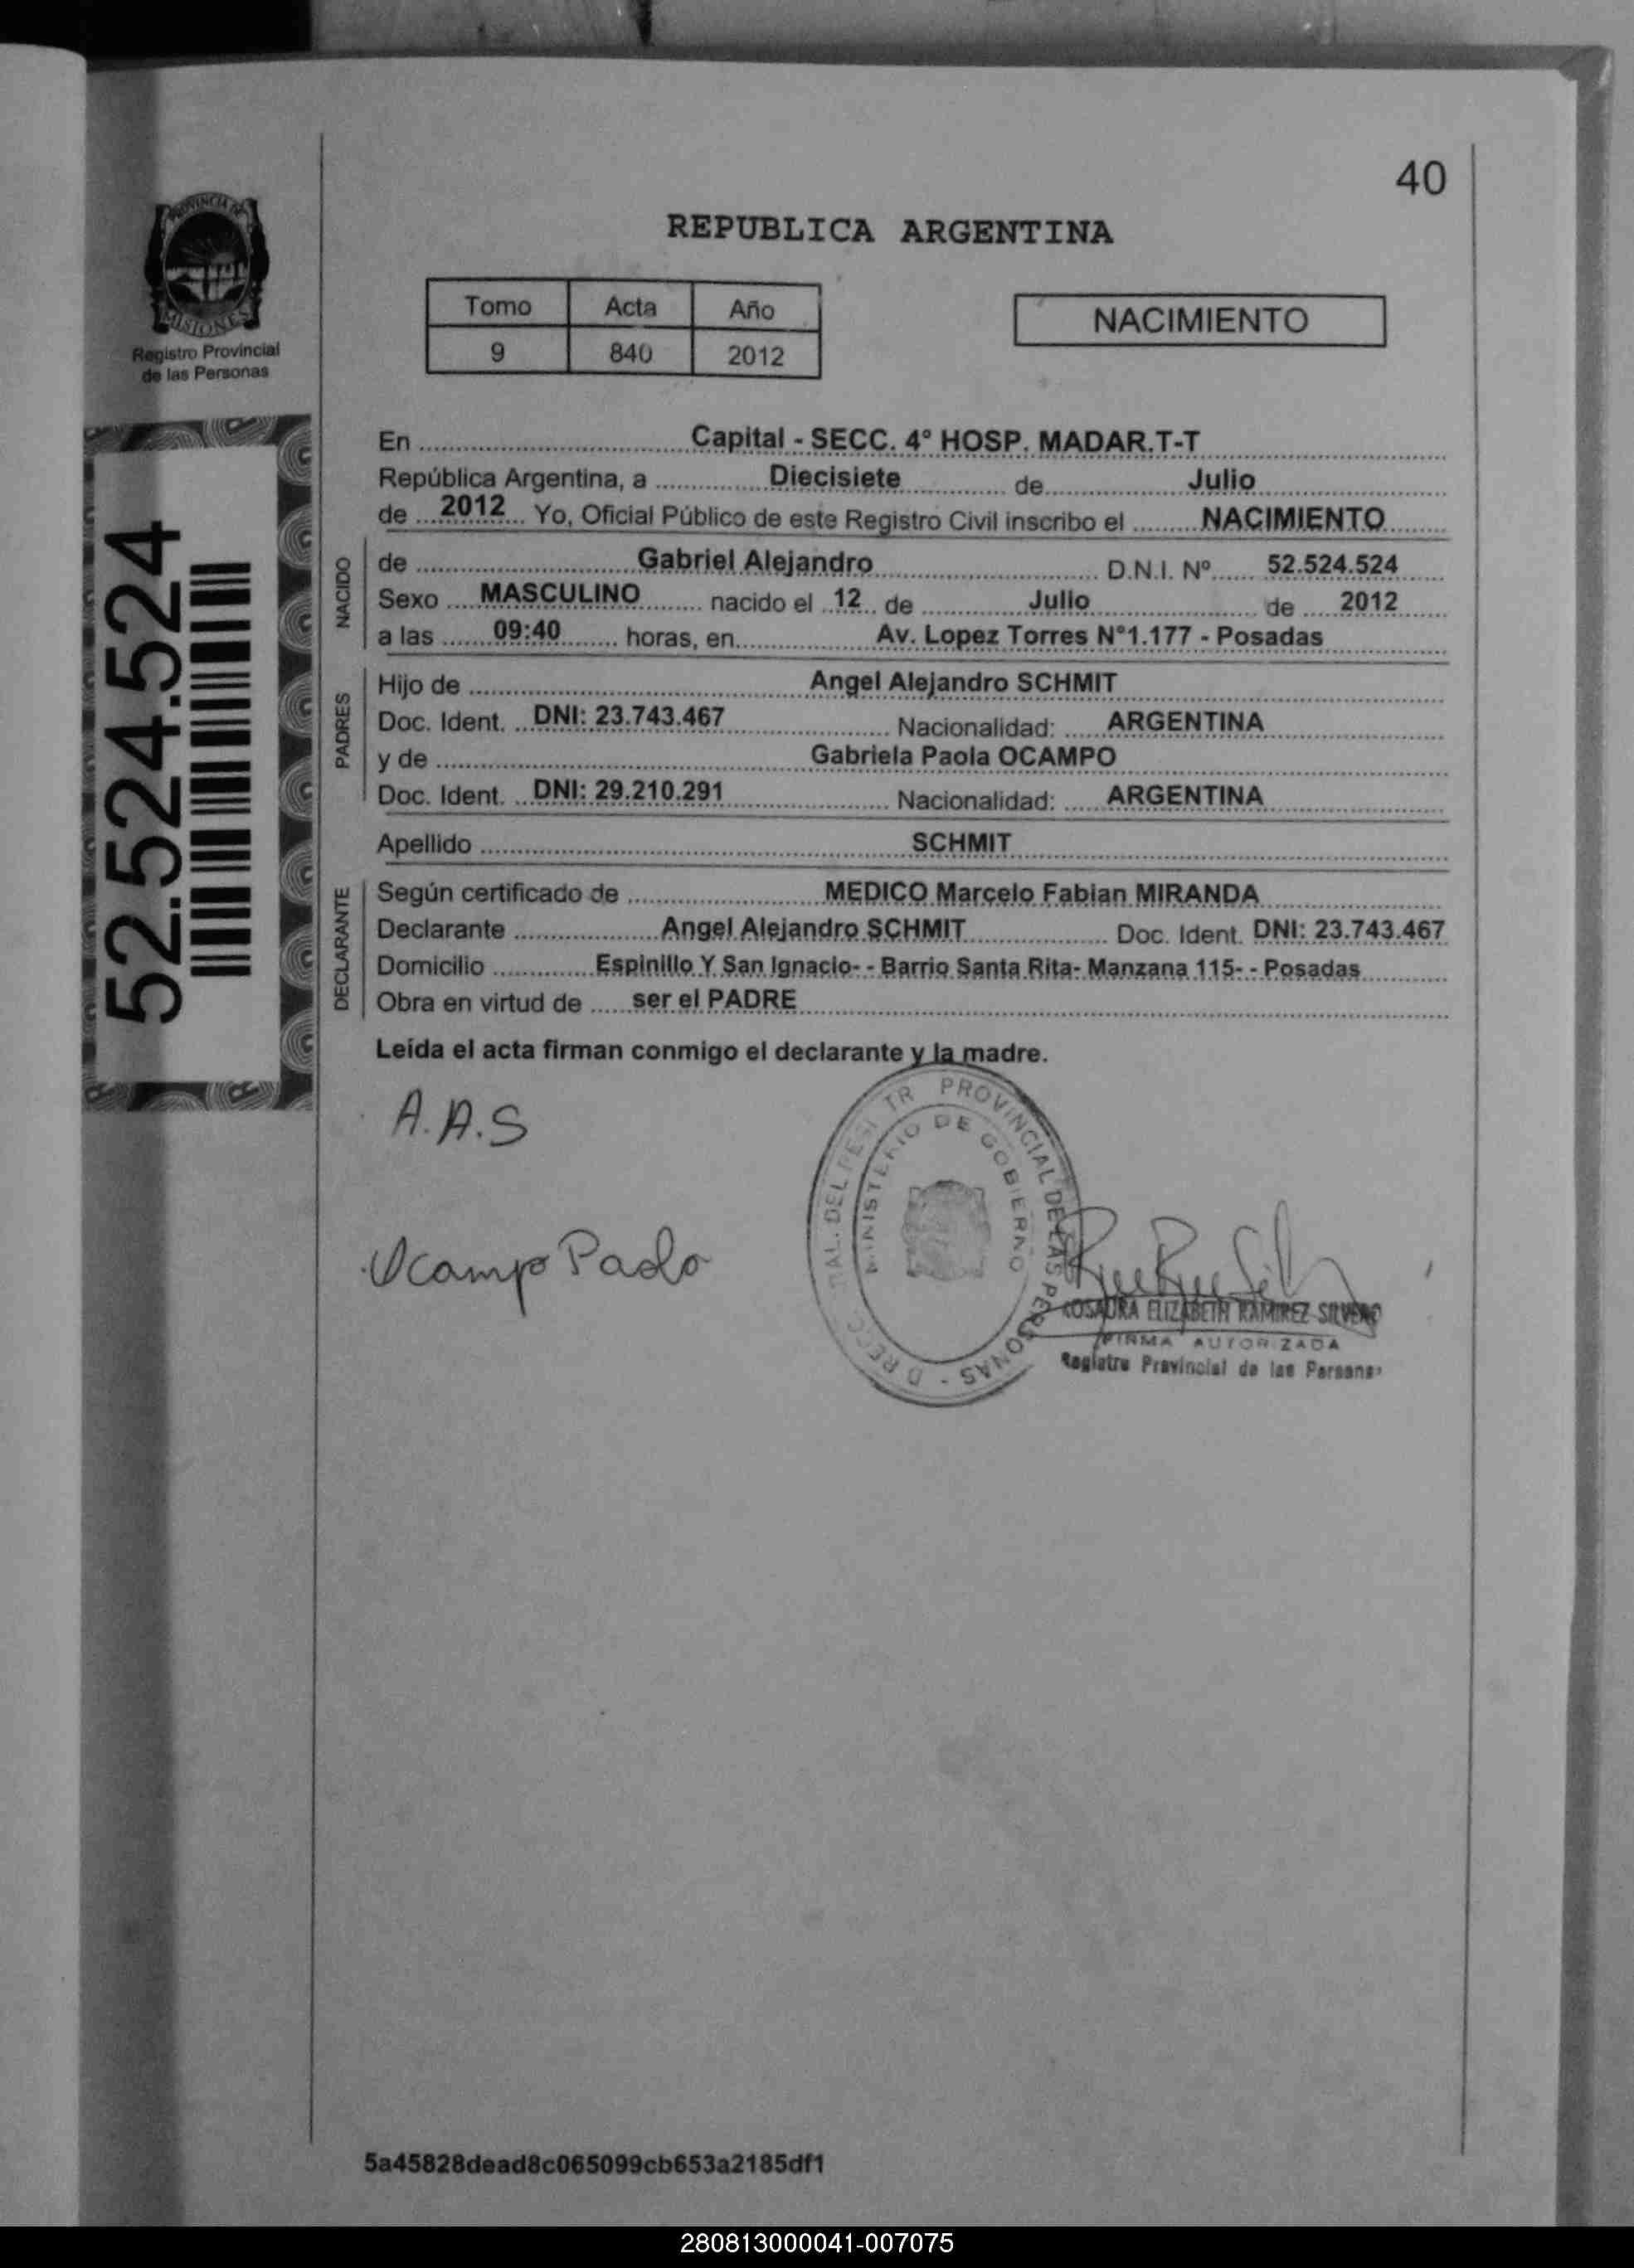 40
PROVINCIA DE
MISIONES
Registro Provincial
de las Personas
REPUBLICA ARGENTINA
Tomo Acta Año
9 840 2012
NACIMIENTO
52.524.524
En Capital - SECC. 4° HOSP. MADAR.T-T
República Argentina, a Diecisiete de Julio
de 2012 Yo, Oficial Público de este Registro Civil inscribo el NACIMIENTO
NACIDO
de Gabriel Alejandro D.N.I. Nº 52.524.524
Sexo MASCULINO nacido el 12 de Julio de 2012
a las 09:40 horas, en Av. Lopez Torres N°1.177 - Posadas
PADRES
Hijo de Angel Alejandro SCHMIT
Doc. Ident. DNI: 23.743.467 Nacionalidad: ARGENTINA
y de Gabriela Paola OCAMPO
Doc. Ident. DNI: 29.210.291 Nacionalidad: ARGENTINA
Apellido SCHMIT
DECLARANTE
Según certificado de MEDICO Marcelo Fabian MIRANDA
Declarante Angel Alejandro SCHMIT Doc. Ident. DNI: 23.743.467
Domicilio Espinillo Y San Ignacio- - Barrio Santa Rita- Manzana 115- - Posadas
Obra en virtud de ser el PADRE
Leída el acta firman conmigo el declarante y la madre.
A.A.S
PROVINCIAL DE LAS PERSONAS -
MINISTERIO DE GOBIERNO
Ocampo Paola
ELIZABETH RAMIREZ SILVERO
FIRMA AUTORIZADA
Registro Provincial de las
5a45828dead8c065099cb653a2185df1
280813000041-007075